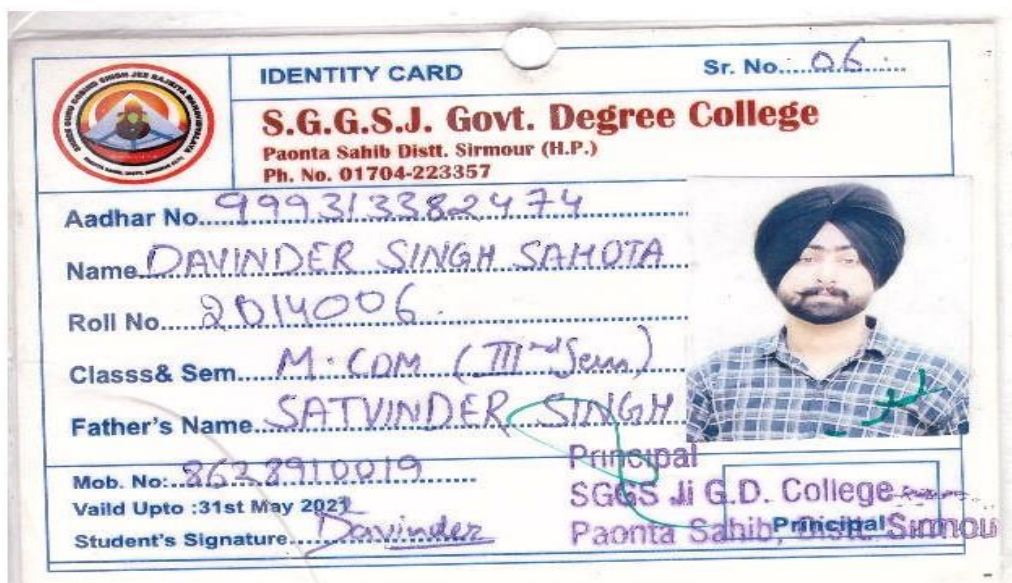 IDENTITY CARD
Sr. No.....06.....
S.G.G.S.J. Govt. Degree College
Paonta Sahib Distt. Sirmour (H.P.)
Ph. No. 01704-223357
Aadhar No....999313382474
Name. DAVINDER SINGH SAHOTA
Roll No.....2014006.
Classs& Sem.....M.COM (IIIrd Sem)
Father's Name...SATVINDER SINGH
Mob. No:..8628910019
Vaild Upto :31st May 202
Student's Signature....Davinder
Principal
SGGS Ji G.D. College
Paonta Sahib, Distt. Sirmou
Principal